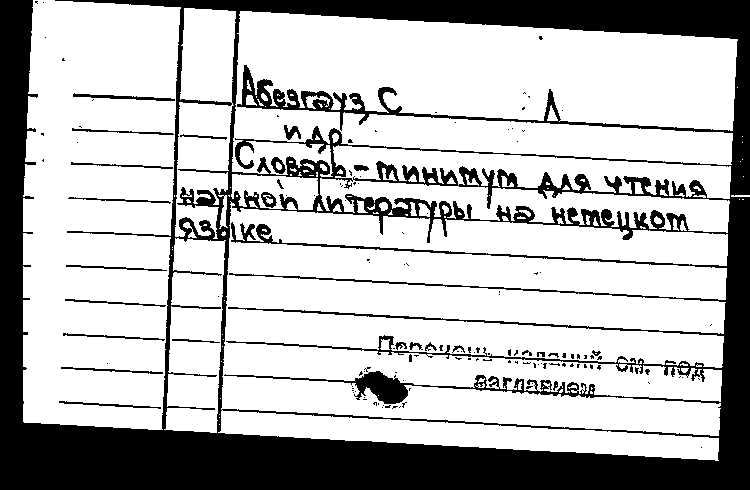 Абезгауз С Л
и др.
Словарь-минимум для чтения
научной литературы на немецком
языке.
Перечень изданий см. под
заглавием